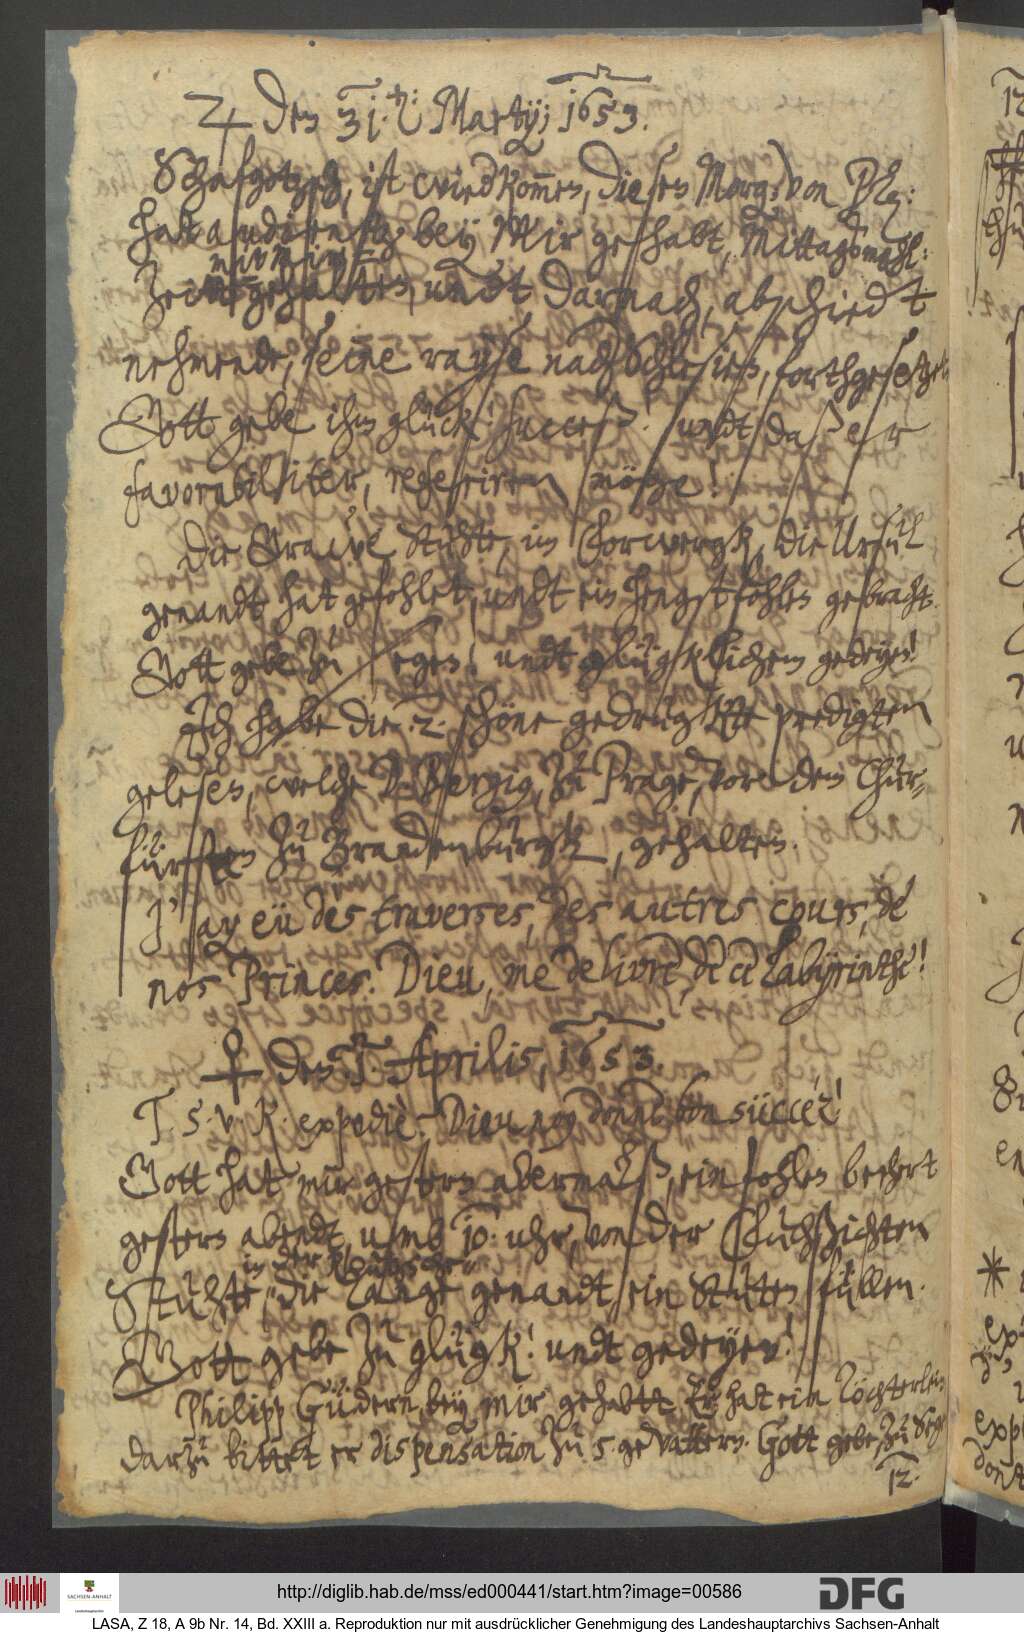 ♃ den 31.ten: Martij; 1653.
Schafgotzsch, ist wiedkom̅en, diesen Morg: von Plz:
hat audientz bey Mir gehabt, Mittagsmahl:
mit mir
Zeit gehalten, undt darnach, abschiedt
nehmende, seine rayse nach Schlesien, forthgesetzet
Gott gebe ihm glück! success! undt daß er
favorabiliter, referiren möge!
Die Grawe Stuhte, im Forwergk, die Ursul
genandt hat gefohlet, undt ein hengstfohlen gebracht.
Gott gebe zu Segen! undt glügklichem gedeyen!
Ich habe die .2. schöne gedrugkte predigten
gelesen, welche D. Bergig, zu Prage, vor dem Chur-
fürsten zu Brandenburgk, gehalten.
J'ay eü des traverses, des autres cours, de
nos Princes. Dieu, me delivre, de ce Labyrinthe!
♀ den 1. Aprilis, 1653.
T. S. v. K. expediè. Dieu noy donne bon succez!
Gott hat mir gestern abermalß, ein fohlen beschert
gestern abendt, umb 10. uhr, von der Fuchßichten
in der
Stuhte, die Lange genandt ein Stuten füllen.
Gott gebe zu glügk! undt gedeyen!
Philipp Güdern, bey mir gehabtt Er hat ein Töchterlein
darzu bittet er dispensation zu 5. gevattern. Gott gebe, zu Segen
12.
http://diglib.hab.de/mss/ed000441/start.htm?image=00586
SACHSEN-ANHALT
Landeshauptarchiv
DFG
LASA, Z 18, A 9b Nr. 14, Bd. XXIII a. Reproduktion nur mit ausdrücklicher Genehmigung des Landeshauptarchivs Sachsen-Anhalt